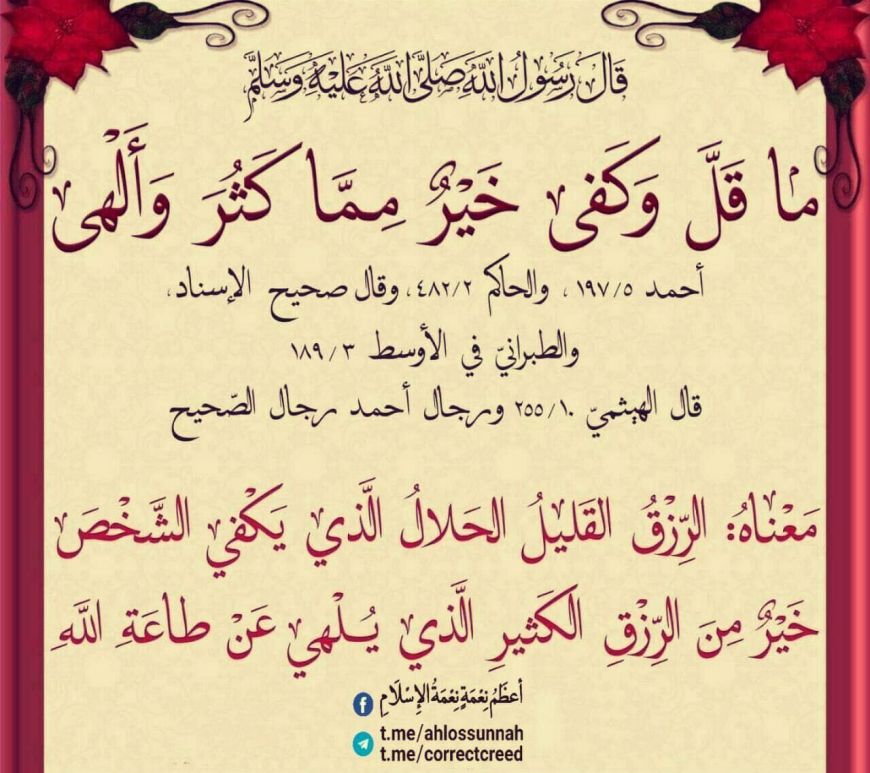 قَالَ رَسُولُ اللهِ صَلَّى اللهُ عَلَيْهِ وَسَلَّمَ
ما قَلَّ وَكَفى خَيْرٌ مِمَّا كَثُرَ وَأَلْهى
أحمد ١٩٧/٥ ، والحاكم ٤٨٢/٢، وقال صحيح الإسناد،
والطبرانيّ في الأوسط ١٨٩/٣
قال الهيثميّ ٢٥٥/١٠ ورجال أحمد رجال الصّحيح
مَعْناهُ: الرِّزْقُ القَليلُ الحَلالُ الَّذي يَكْفي الشَّخْصَ
خَيْرٌ مِنَ الرِّزْقِ الكَثيرِ الَّذي يُلْهي عَنْ طاعَةِ اللَّهِ
أَعظَمُ نِعْمَةٍ نِعْمَةُ الإِسْلَامِ
t.me/ahlossunnah
t.me/correctcreed